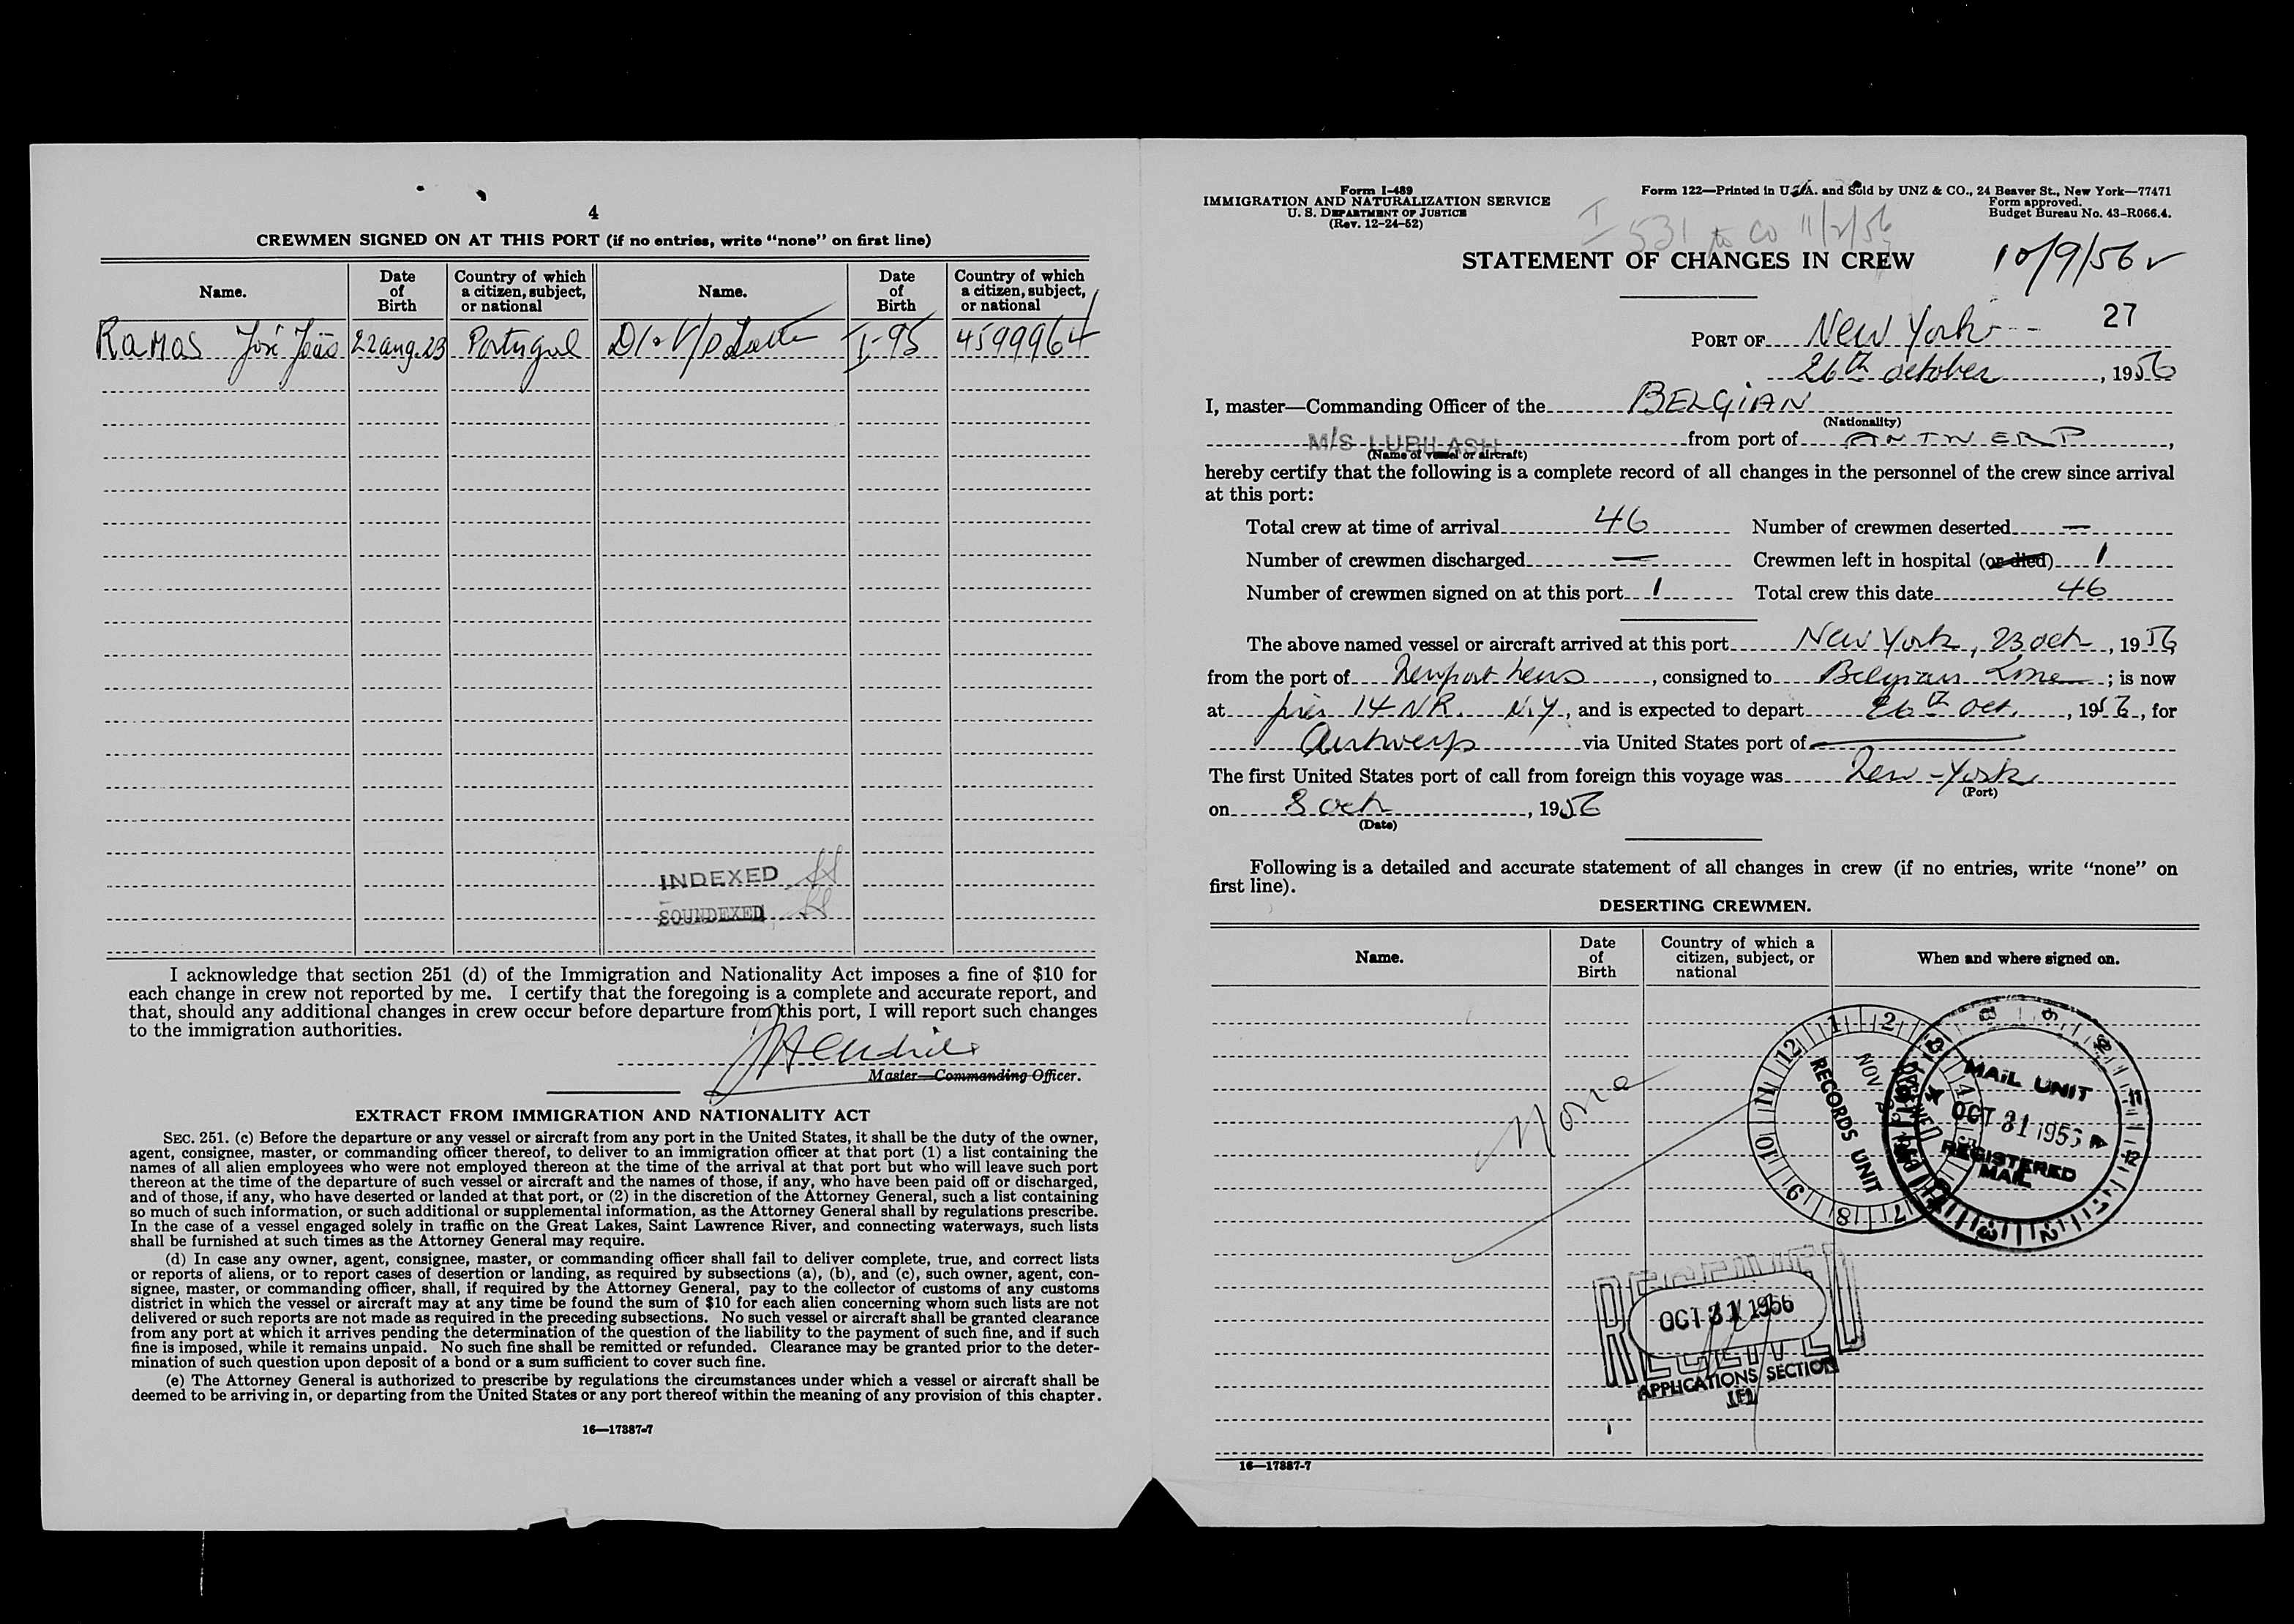 4
CREWMEN SIGNED ON AT THIS PORT (if no entries, write “none” on first line)
Name. Date of Birth Country of which a citizen, subject, or national Name. Date of Birth Country of which a citizen, subject, or national
Ramos José João 22 aug. 23 Portugal I-95 4599964
INDEXED
SOUNDEXED
I acknowledge that section 251 (d) of the Immigration and Nationality Act imposes a fine of $10 for
each change in crew not reported by me. I certify that the foregoing is a complete and accurate report, and
that, should any additional changes in crew occur before departure from this port, I will report such changes
to the immigration authorities.
Master—Commanding Officer.
EXTRACT FROM IMMIGRATION AND NATIONALITY ACT
SEC. 251. (c) Before the departure or any vessel or aircraft from any port in the United States, it shall be the duty of the owner,
agent, consignee, master, or commanding officer thereof, to deliver to an immigration officer at that port (1) a list containing the
names of all alien employees who were not employed thereon at the time of the arrival at that port but who will leave such port
thereon at the time of the departure of such vessel or aircraft and the names of those, if any, who have been paid off or discharged,
and of those, if any, who have deserted or landed at that port, or (2) in the discretion of the Attorney General, such a list containing
so much of such information, or such additional or supplemental information, as the Attorney General shall by regulations prescribe.
In the case of a vessel engaged solely in traffic on the Great Lakes, Saint Lawrence River, and connecting waterways, such lists
shall be furnished at such times as the Attorney General may require.
(d) In case any owner, agent, consignee, master, or commanding officer shall fail to deliver complete, true, and correct lists
or reports of aliens, or to report cases of desertion or landing, as required by subsections (a), (b), and (c), such owner, agent, con-
signee, master, or commanding officer, shall, if required by the Attorney General, pay to the collector of customs of any customs
district in which the vessel or aircraft may at any time be found the sum of $10 for each alien concerning whom such lists are not
delivered or such reports are not made as required in the preceding subsections. No such vessel or aircraft shall be granted clearance
from any port at which it arrives pending the determination of the question of the liability to the payment of such fine, and if such
fine is imposed, while it remains unpaid. No such fine shall be remitted or refunded. Clearance may be granted prior to the deter-
mination of such question upon deposit of a bond or a sum sufficient to cover such fine.
(e) The Attorney General is authorized to prescribe by regulations the circumstances under which a vessel or aircraft shall be
deemed to be arriving in, or departing from the United States or any port thereof within the meaning of any provision of this chapter.
16—17887-7
Form I-489
IMMIGRATION AND NATURALIZATION SERVICE
U. S. DEPARTMENT OF JUSTICE
(Rev. 12-24-52)
Form 122—Printed in U.S.A. and Sold by UNZ & CO., 24 Beaver St., New York—77471
Form approved.
Budget Bureau No. 43-R066.4.
I 531 to CO 11/2/56
STATEMENT OF CHANGES IN CREW
10/9/56
27
PORT OF New York
26th october, 1956
I, master—Commanding Officer of the BELGIAN
(Nationality)
M/S LUBILASH from port of ANTWERP,
(Name of vessel or aircraft)
hereby certify that the following is a complete record of all changes in the personnel of the crew since arrival
at this port:
Total crew at time of arrival 46 Number of crewmen deserted —
Number of crewmen discharged — Crewmen left in hospital (or died) 1
Number of crewmen signed on at this port 1 Total crew this date 46
The above named vessel or aircraft arrived at this port New York, 23 oct, 1956
from the port of Newport News, consigned to Belgian Line; is now
at pier 14 NR. N.Y, and is expected to depart 26th oct., 1956, for
Antwerp via United States port of —
The first United States port of call from foreign this voyage was New-York
(Port)
on 8 oct, 1956
(Date)
Following is a detailed and accurate statement of all changes in crew (if no entries, write “none” on
first line).
DESERTING CREWMEN.
Name. Date of Birth Country of which a citizen, subject, or national When and where signed on.
None
RECORDS UNIT
NOV
MAIL UNIT
OCT 31 1956
REGISTERED
MAIL
RECEIVED
OCT 31 1956
APPLICATIONS SECTION
16—17887-7